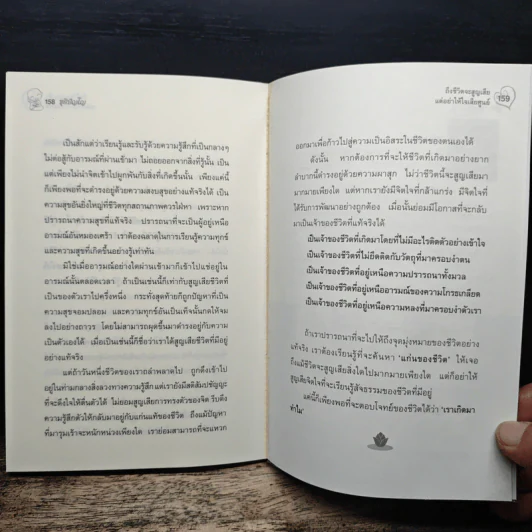 158
เป็นสักแต่ว่าเรียนรู้และรับรู้ด้วยความรู้สึกที่เป็นกลางๆ
ไม่ต่อสู้กับอารมณ์ที่ผ่านเข้ามา ไม่ถอยออกจากสิ่งที่รู้นั้น เป็น
แต่เพียงไม่นำจิตเข้าไปผูกพันกับสิ่งที่เกิดขึ้นนั้น เพียงแค่นี้
ก็เพียงพอที่จะดำรงอยู่ด้วยความสงบสุขอย่างแท้จริงได้ เป็น
ความสุขอันยิ่งใหญ่ที่ชีวิตทุกสถานภาพควรใฝ่หา เพราะหาก
ปรารถนาความสุขที่แท้จริง ปรารถนาที่จะเป็นผู้อยู่เหนือ
อารมณ์อันหมองเศร้า เราต้องฉลาดในการเรียนรู้ความทุกข์
และความสุขที่เกิดขึ้นอย่างรู้เท่าทัน
มิใช่เมื่ออารมณ์อย่างใดผ่านเข้ามาก็เข้าไปแช่อยู่ใน
อารมณ์นั้นตลอดเวลา ถ้าเป็นเช่นนี้ก็เท่ากับสูญเสียชีวิตที่
เป็นของตัวเราไปครึ่งหนึ่ง กระทั่งสุดท้ายก็ถูกปัญหาที่เป็น
ความสุขจอมปลอม และความทุกข์อันเป็นเท็จนั้นกดให้จม
ลงไปอย่างถาวร โดยไม่สามารถผุดขึ้นมาดำรงอยู่กับความ
เป็นตัวเองได้ เมื่อเป็นเช่นนี้ก็ชื่อว่าเราได้สูญเสียชีวิตที่มีอยู่
อย่างแท้จริง
แต่ถ้าวันหนึ่งชีวิตของเราถลำพลาดไป ถูกดึงเข้าไป
อยู่ในท่ามกลางสิ่งลวงทางความรู้สึก แต่เรายังมีสติสัมปชัญญะ
ที่จะดึงใจให้ตื่นตัวได้ ไม่ยอมสูญเสียการทรงตัวของจิต รีบดึง
ความรู้สึกตัวให้กลับมาอยู่กับแก่นแท้ของชีวิต ถึงแม้ปัญหา
ที่มารุมเร้าจะหนักหน่วงเพียงใด เราย่อมสามารถที่จะแหวก
ถึงชีวิตจะสูญเสีย
แต่อย่าให้ใจเสียศูนย์
159
ออกมาเพื่อก้าวไปสู่ความเป็นอิสระในชีวิตของตนเองได้
ดังนั้น หากต้องการที่จะให้ชีวิตที่เกิดมาอย่างยาก
ลำบากนี้ดำรงอยู่ด้วยความผาสุก ไม่ว่าชีวิตนี้จะสูญเสียมา
มากมายเพียงใด แต่หากเรายังมีจิตใจที่กล้าแกร่ง มีจิตใจที่
ได้รับการพัฒนาอย่างถูกต้อง เมื่อนั้นย่อมมีโอกาสที่จะกลับ
มาเป็นเจ้าของชีวิตที่แท้จริงได้
เป็นเจ้าของชีวิตที่เกิดมาโดยที่ไม่มีอะไรติดตัวอย่างเข้าใจ
เป็นเจ้าของชีวิตที่ไม่ยึดติดกับวัตถุที่มาครอบงำตน
เป็นเจ้าของชีวิตที่อยู่เหนือความปรารถนาทั้งมวล
เป็นเจ้าของชีวิตที่อยู่เหนืออารมณ์ของความโกรธเกลียด
เป็นเจ้าของชีวิตที่อยู่เหนือความหลงที่มาครอบงำตัวเรา
ถ้าเราปรารถนาที่จะไปให้ถึงจุดมุ่งหมายของชีวิตอย่าง
แท้จริง เราต้องเรียนรู้ที่จะค้นหา 'แก่นของชีวิต' ให้เจอ
ถึงแม้ชีวิตจะสูญเสียสิ่งใดไปมากมายเพียงใด แต่ก็อย่าให้
สูญเสียจิตใจที่จะเรียนรู้สัจธรรมของชีวิตที่มีอยู่
แค่นี้ก็เพียงพอที่จะตอบโจทย์ของชีวิตได้ว่า 'เราเกิดมา
ทำไม'